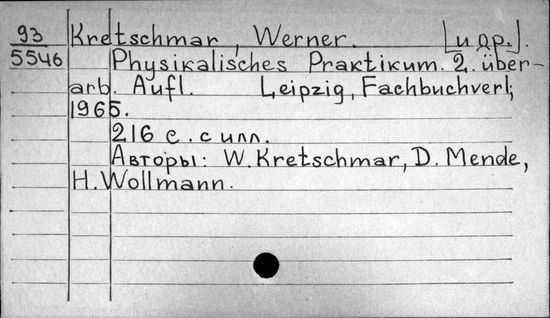 93 Kretschmar, Werner. [и др.].
5546 Physikalisches Praktikum. 2. über-
arb. Aufl. Leipzig, Fachbuchverl.,
1965.
216 с. с илл.
Авторы: W. Kretschmar, D. Mende,
H. Wollmann.